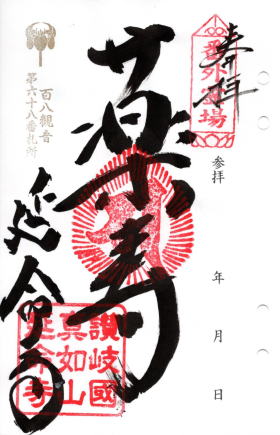 奉拝
番外霊場
参拝　年　月　日
薬寿
百八観音
第六十八番札所
延命寺
讃岐國
真如山
延命寺